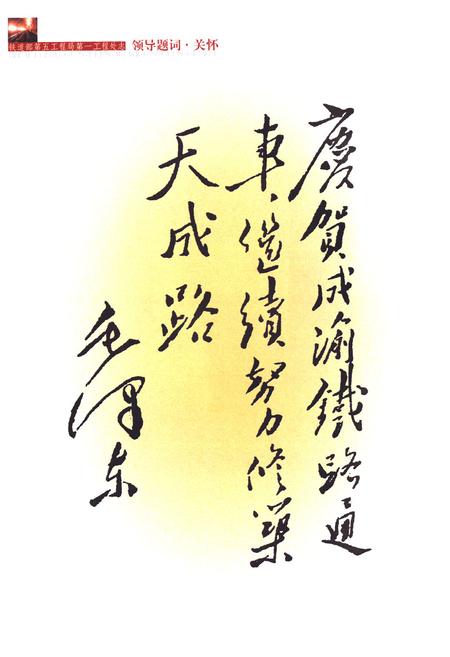 铁道部第五工程局第一工程处志
领导题词·关怀
慶賀成渝鐵路通
車、繼續努力修築
天成路
毛澤东